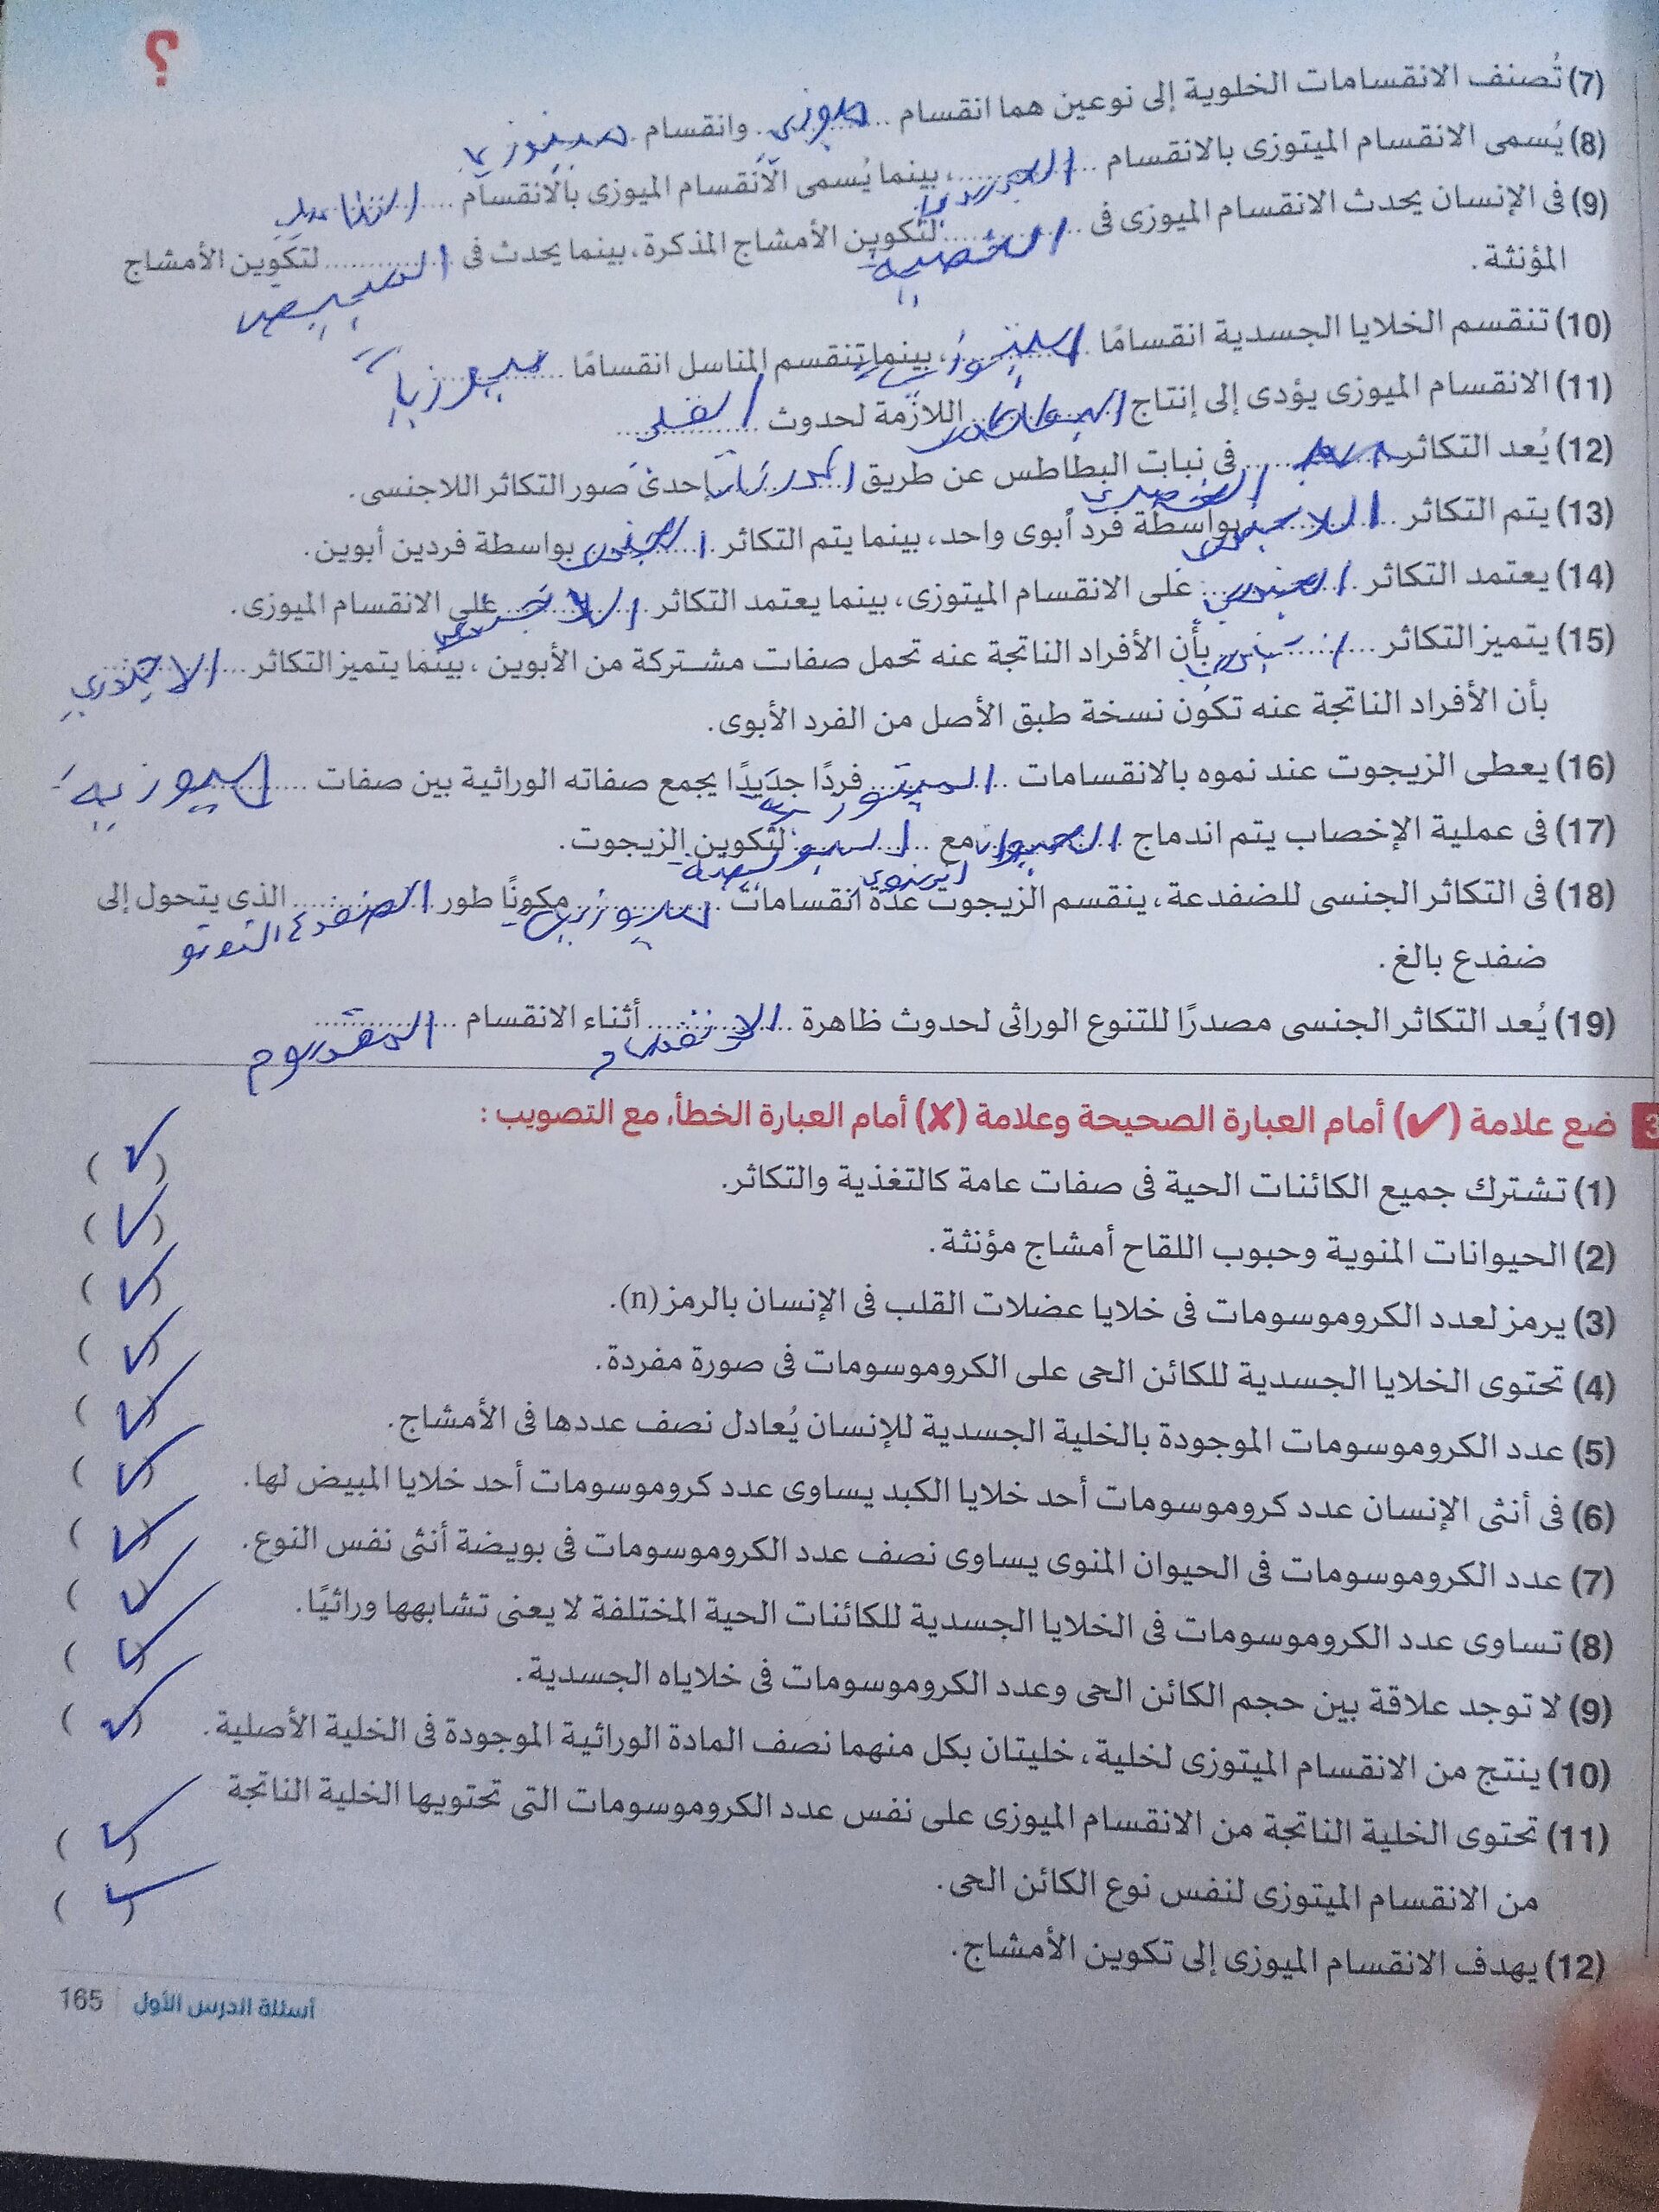 ؟
(7) تُصنف الانقسامات الخلوية إلى نوعين هما انقسام ميوزى وانقسام ميتوزى
(8) يُسمى الانقسام الميتوزى بالانقسام ............، بينما يُسمى الانقسام الميوزى بالانقسام ............
(9) فى الإنسان يحدث الانقسام الميوزى فى الخصية لتكوين الأمشاج المذكرة، بينما يحدث فى المبيض لتكوين الأمشاج
المؤنثة.
(10) تنقسم الخلايا الجسدية انقسامًا ............، بينما تنقسم المناسل انقسامًا ميوزيًا
(11) الانقسام الميوزى يؤدى إلى إنتاج ............ اللازمة لحدوث ............
(12) يُعد التكاثر الخضرى فى نبات البطاطس عن طريق الدرنات إحدى صور التكاثر اللاجنسى.
(13) يتم التكاثر اللاجنسى بواسطة فرد أبوى واحد، بينما يتم التكاثر الجنسى بواسطة فردين أبوين.
(14) يعتمد التكاثر الجنسى على الانقسام الميتوزى، بينما يعتمد التكاثر اللاجنسى على الانقسام الميوزى.
(15) يتميز التكاثر ............ بأن الأفراد الناتجة عنه تحمل صفات مشتركة من الأبوين، بينما يتميز التكاثر الاجنسى
بأن الأفراد الناتجة عنه تكون نسخة طبق الأصل من الفرد الأبوى.
(16) يعطى الزيجوت عند نموه بالانقسامات الميتوزية فردًا جديدًا يجمع صفاته الوراثية بين صفات الميوزية
(17) فى عملية الإخصاب يتم اندماج الحيوان المنوي مع ............ لتكوين الزيجوت.
(18) فى التكاثر الجنسى للضفدعة، ينقسم الزيجوت عدة انقسامات ............ مكونًا طور ............ الذى يتحول إلى
ضفدع بالغ.
(19) يُعد التكاثر الجنسى مصدرًا للتنوع الوراثى لحدوث ظاهرة الانقسام أثناء الانقسام ............
3 ضع علامة (✓) أمام العبارة الصحيحة وعلامة (✗) أمام العبارة الخطأ، مع التصويب:
(1) تشترك جميع الكائنات الحية فى صفات عامة كالتغذية والتكاثر. (✓)
(2) الحيوانات المنوية وحبوب اللقاح أمشاج مؤنثة. (✓)
(3) يرمز لعدد الكروموسومات فى خلايا عضلات القلب فى الإنسان بالرمز (n). (✓)
(4) تحتوى الخلايا الجسدية للكائن الحى على الكروموسومات فى صورة مفردة. (✓)
(5) عدد الكروموسومات الموجودة بالخلية الجسدية للإنسان يُعادل نصف عددها فى الأمشاج. (✓)
(6) فى أنثى الإنسان عدد كروموسومات أحد خلايا الكبد يساوى عدد كروموسومات أحد خلايا المبيض لها. (✓)
(7) عدد الكروموسومات فى الحيوان المنوى يساوى نصف عدد الكروموسومات فى بويضة أنثى نفس النوع. (✓)
(8) تساوى عدد الكروموسومات فى الخلايا الجسدية للكائنات الحية المختلفة لا يعنى تشابهها وراثيًا. (✓)
(9) لا توجد علاقة بين حجم الكائن الحى وعدد الكروموسومات فى خلاياه الجسدية. (✓)
(10) ينتج من الانقسام الميتوزى لخلية، خليتان بكل منهما نصف المادة الوراثية الموجودة فى الخلية الأصلية. (✓)
(11) تحتوى الخلية الناتجة من الانقسام الميوزى على نفس عدد الكروموسومات التى تحتويها الخلية الناتجة
من الانقسام الميتوزى لنفس نوع الكائن الحى. (✓)
(12) يهدف الانقسام الميوزى إلى تكوين الأمشاج. (✓)
أسئلة الدرس الأول | 165